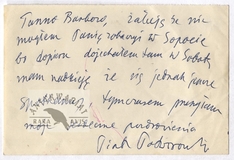 Panno Barbaro, żałuję że nie
mogłem Panią zobaczyć w Sopocie
bo dopiero dojechałem tam w Sobotę
mam nadzieję że się jednak jeszcze
tymczasem przesyłam
moje serdeczne pozdrowienia
Piotr
ANTYKWARIAT
RARA AVIS